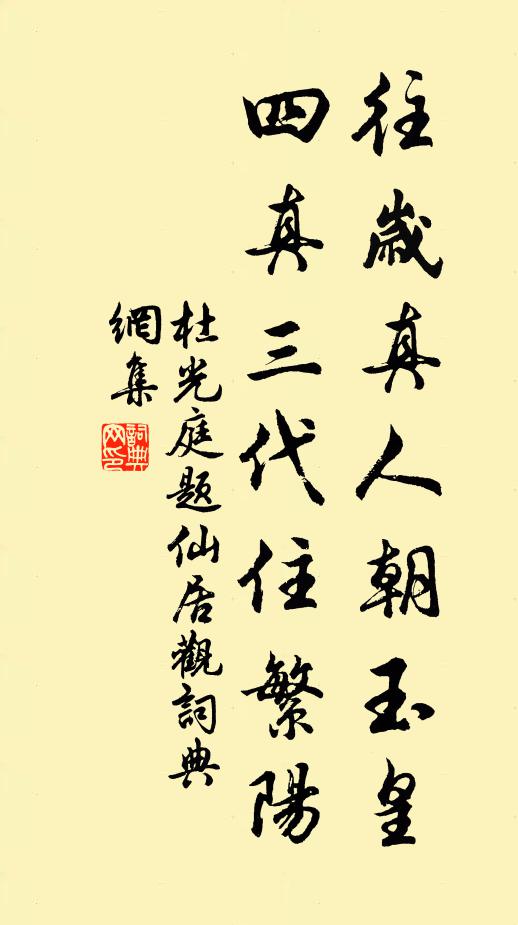 往歲真人朝玉皇
四真三代住繁陽
杜光庭題仙居觀詞典
網集
詞典網印